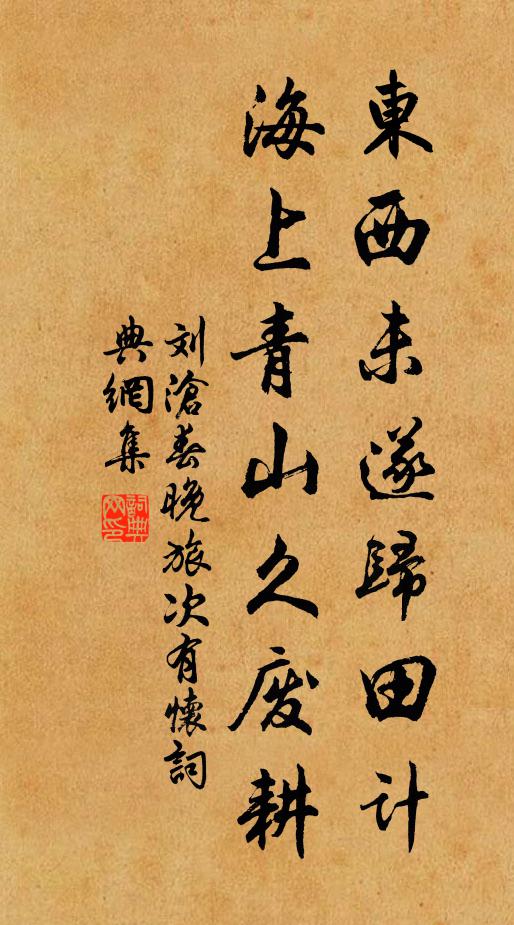 東西未遂歸田计
海上青山久废耕
刘滄春晚旅次有懷詞
典網集
詞典網印